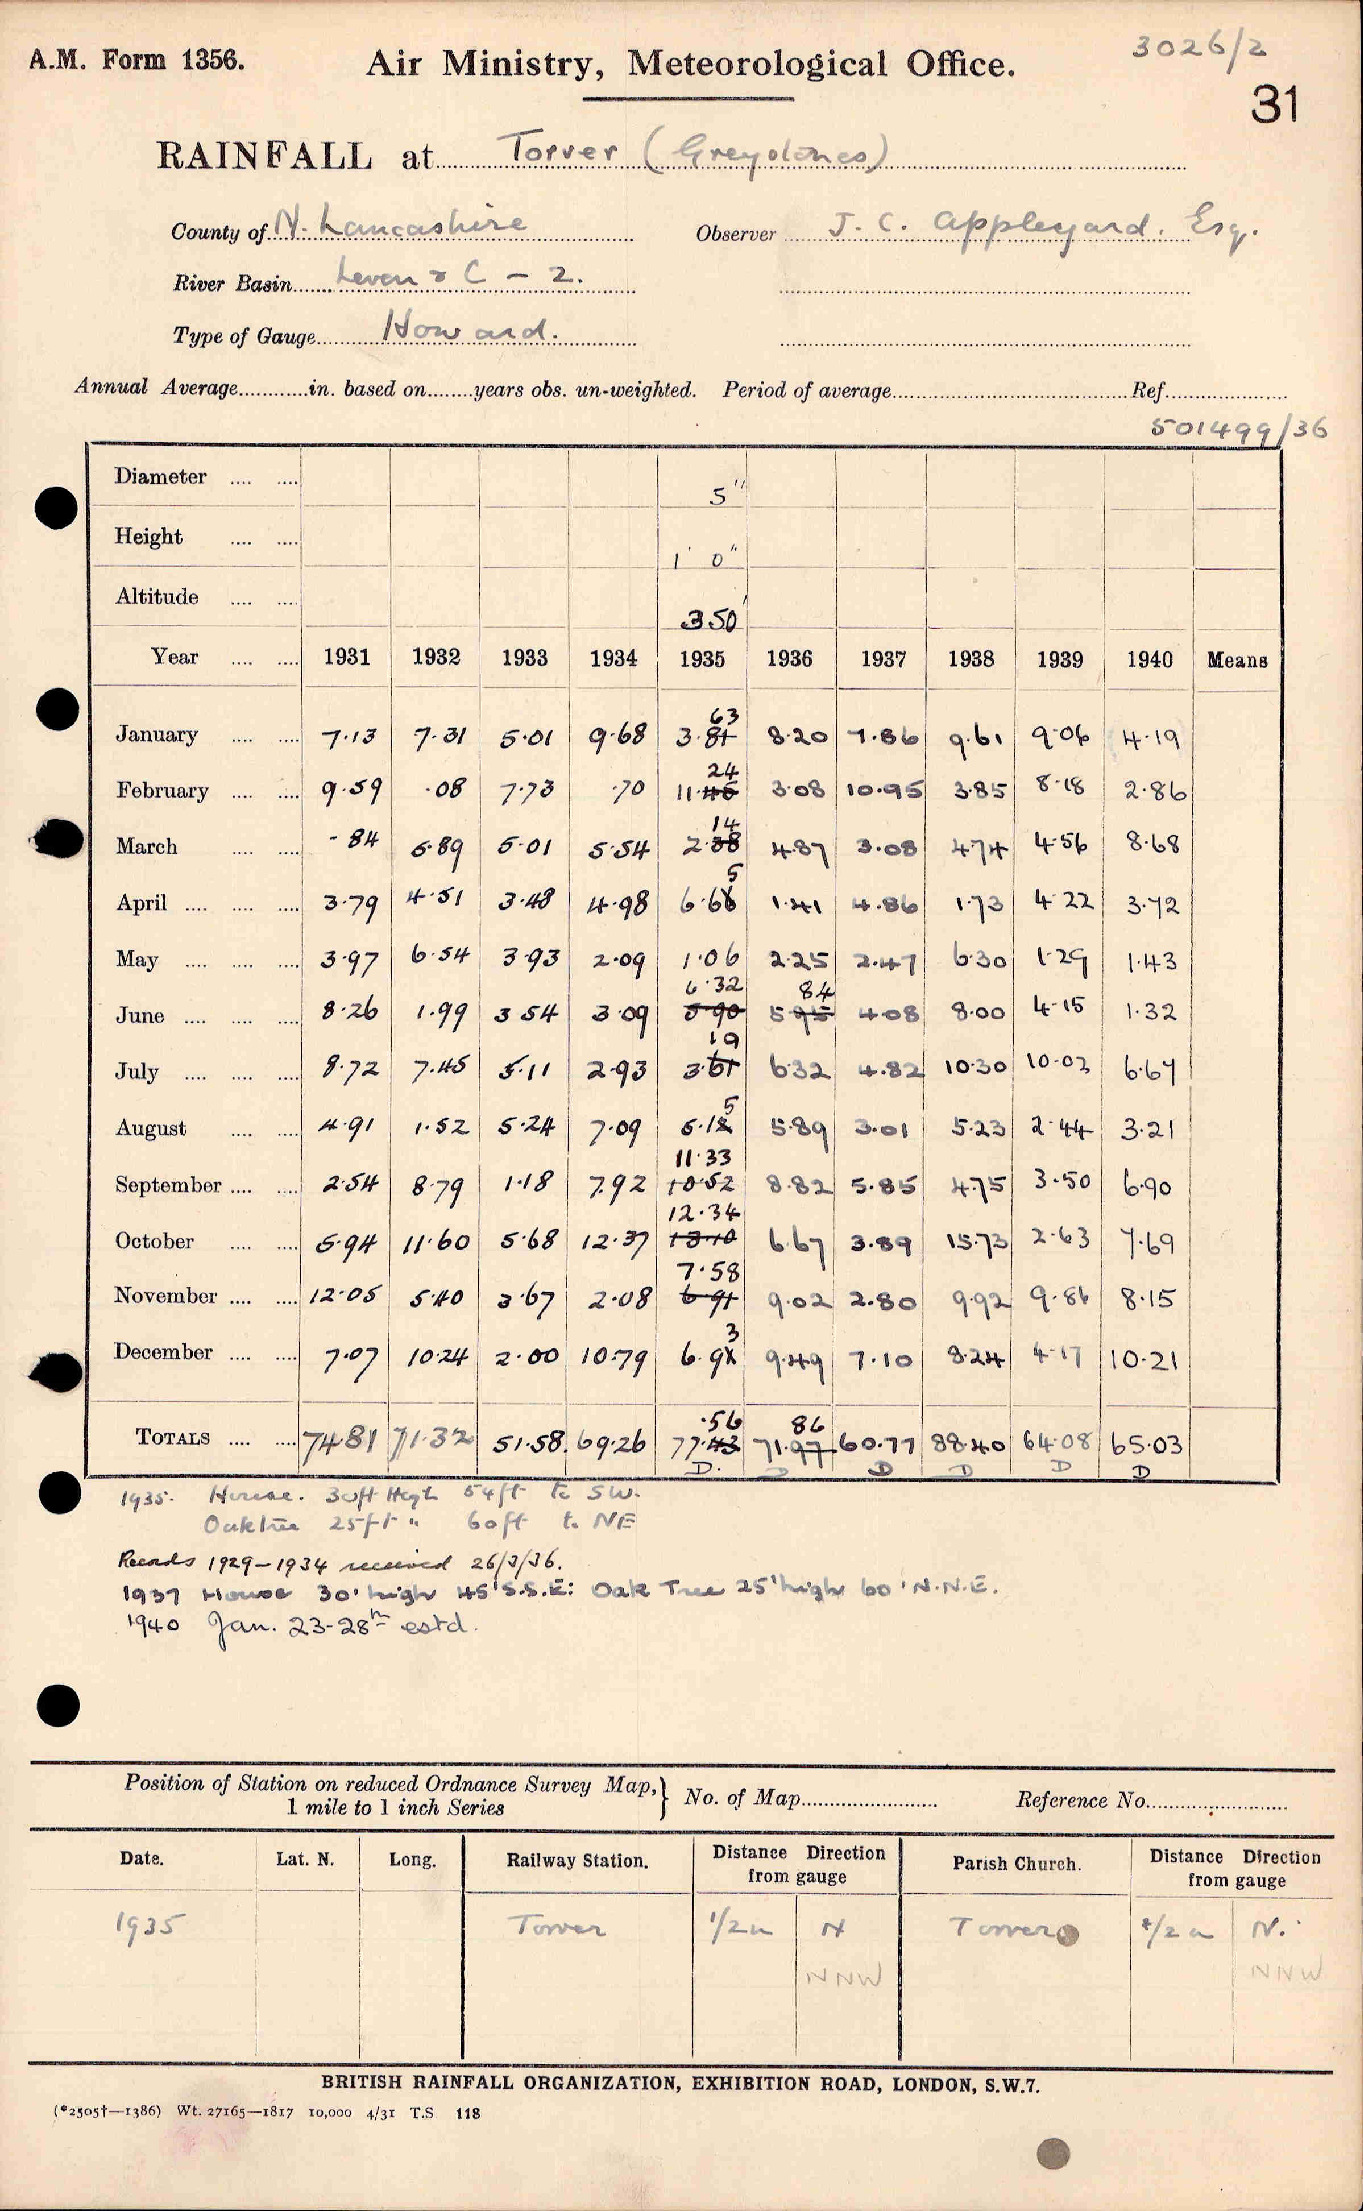 3026/2
A.M. Form 1356. Air Ministry, Meteorological Office.
31
RAINFALL at Torver (Greystones)
County of N. Lancashire Observer J. C. Appleyard. Esq.
River Basin Leven & C - 2.
Type of Gauge Howard.
Annual Average............in. based on........years obs. un-weighted. Period of average.................... Ref....................
501499/36
Diameter .... .... 5"
Height .... .... 1' 0"
Altitude .... .... 350'
Year .... .... 1931 1932 1933 1934 1935 1936 1937 1938 1939 1940 Means
63
January .... .... 7.13 7.31 5.01 9.68 3.81 8.20 7.86 9.61 9.06 4.19
24
February .... .... 9.59 .08 7.73 .70 11.46 3.08 10.95 3.85 8.18 2.86
14
March .... .... .84 5.89 5.01 5.54 2.38 4.87 3.08 4.74 4.56 8.68
5
April .... .... .... 3.79 4.51 3.48 4.98 6.66 1.41 4.86 1.73 4.22 3.72
May .... .... .... 3.97 6.54 3.93 2.09 1.06 2.25 2.47 6.30 1.29 1.43
6.32 84
June .... .... .... 8.26 1.99 3.54 3.09 5.90 5.95 4.08 8.00 4.15 1.32
19
July .... .... .... 8.72 7.45 5.11 2.93 3.61 6.32 4.82 10.30 10.02 6.67
5
August .... .... 4.91 1.52 5.24 7.09 5.12 5.89 3.01 5.23 2.44 3.21
11.33
September .... .... 2.54 8.79 1.18 7.92 10.52 8.82 5.85 4.75 3.50 6.90
12.34
October .... .... 5.94 11.60 5.68 12.37 13.10 6.67 3.89 15.73 2.63 7.69
7.58
November .... .... 12.05 5.40 3.67 2.08 6.91 9.02 2.80 9.92 9.86 8.15
3
December .... .... 7.07 10.24 2.00 10.79 6.91 9.49 7.10 8.24 4.17 10.21
.56 86
TOTALS .... .... 74.81 71.32 51.58 69.26 77.43 71.97 60.77 88.40 64.08 65.03
D. D D D D D
1935. House. 30ft High 54ft to SW.
Oaktree 25ft " 60ft to NE
Records 1929-1934 received 26/3/36.
1937 House 30' high 45' S.S.E: Oak Tree 25' high 60' N.N.E.
1940 Jan. 23-28th estd.
Position of Station on reduced Ordnance Survey Map,} No. of Map.................... Reference No....................
1 mile to 1 inch Series
Date. Lat. N. Long. Railway Station. Distance Direction from gauge Parish Church. Distance Direction from gauge
1935 Torver 1/2 m N Torver 1/2 m N.
NNW NNW
BRITISH RAINFALL ORGANIZATION, EXHIBITION ROAD, LONDON, S.W.7.
(*2505†—1386) Wt. 27165—1817 10,000 4/31 T.S 118